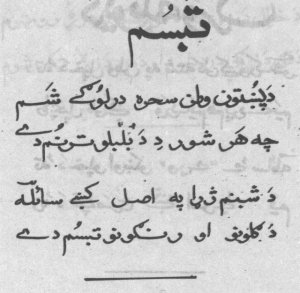 تبسم
دَپښتون وطن سحره درلوګے شَم
چه هَر شور دِ دَ بُلبلو ترنُم دے
دَ شبنم ژړا په اصل کښے سائله
دَ ګلونو او رنګونو تبسُم دے